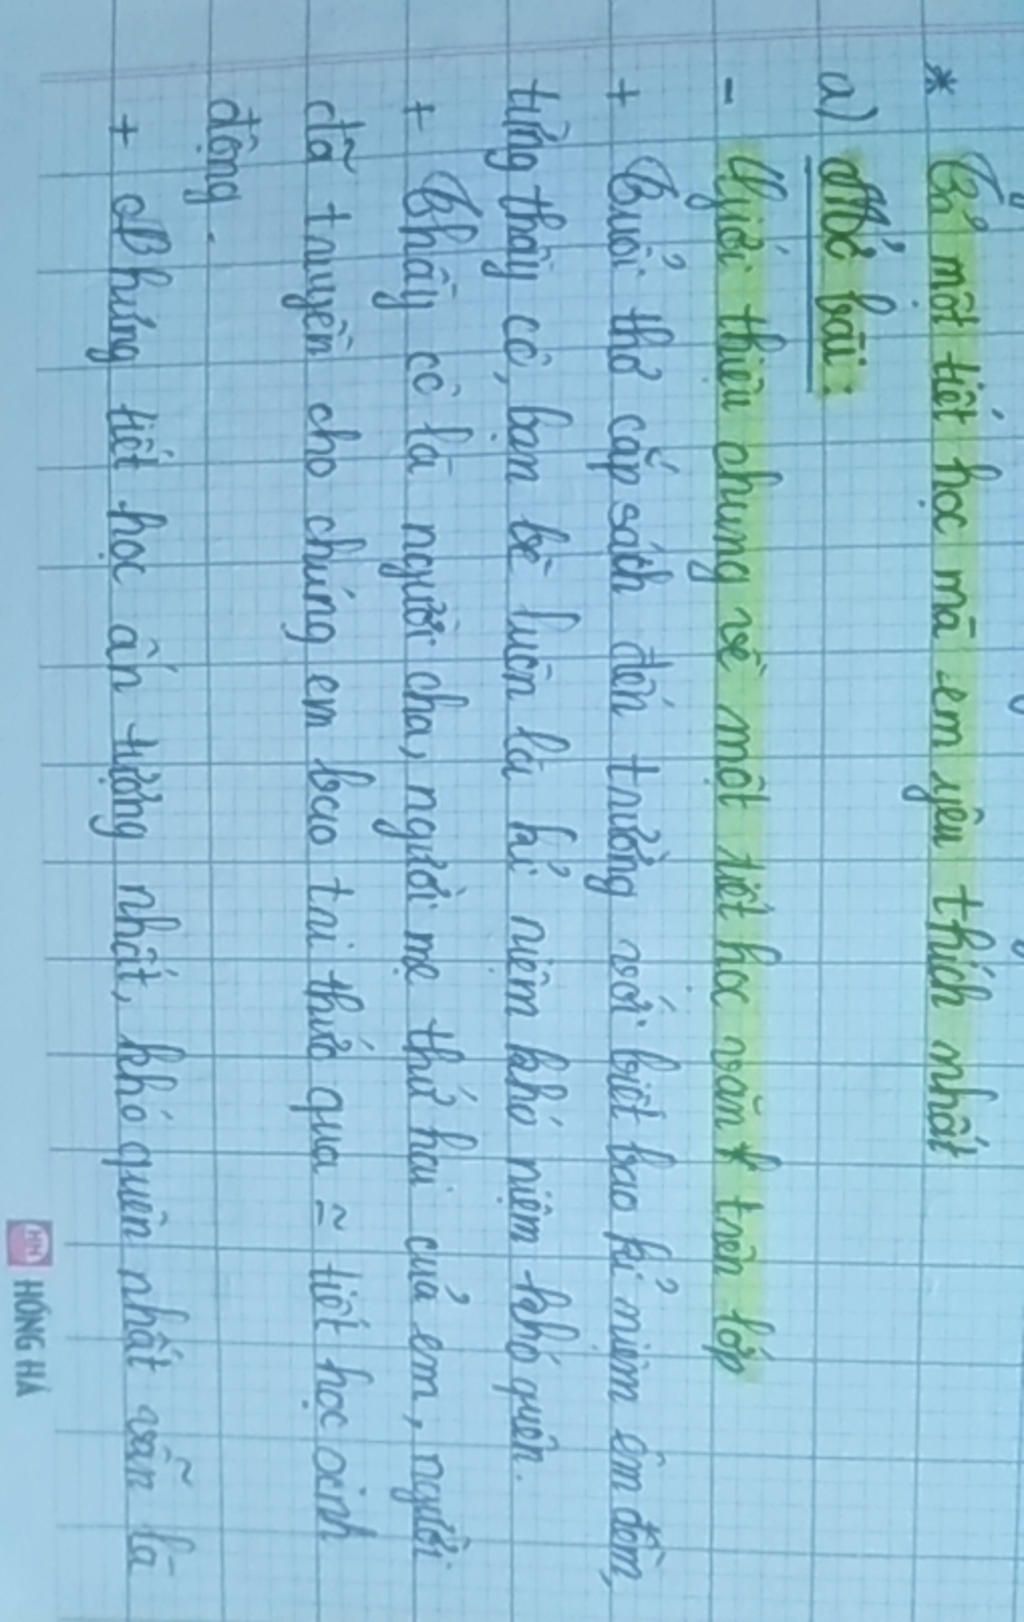 * Tả một tiết học mà em yêu thích nhất
a) Mở bài:
- Giới thiệu chung về một tiết học văn trên lớp
+ Tuổi thơ cắp sách đến trường với biết bao kỉ niệm êm đềm,
từng thầy cô, bạn bè luôn là kỉ niệm khó niệm khó quên.
+ Thầy cô là người cha, người mẹ thứ hai của em, người
đã truyền cho chúng em bao tri thức qua ~ tiết học sinh
động.
+ Nhưng tiết học ấn tượng nhất, khó quên nhất vẫn là
HỒNG HÀ